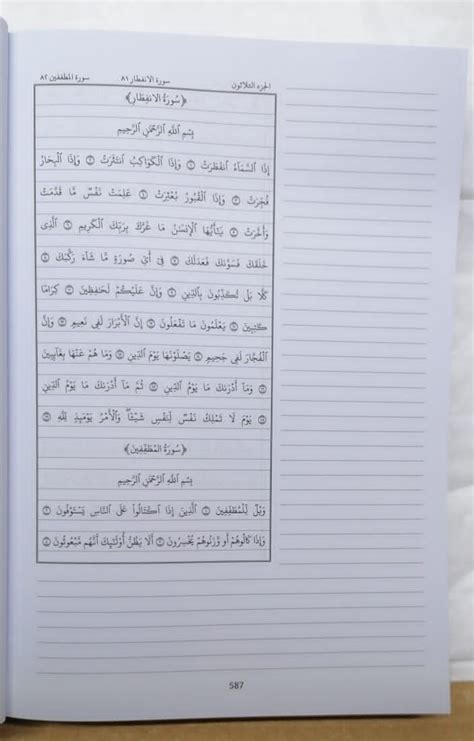 الجزء الثلاثون سورة الانفطار ٨١ سورة المطففين ٨٢
﴿سُورَةُ الِانفِطَارِ﴾
بِسْمِ ٱللَّهِ ٱلرَّحْمَٰنِ ٱلرَّحِيمِ
إِذَا ٱلسَّمَآءُ ٱنفَطَرَتْ ۝ وَإِذَا ٱلْكَوَاكِبُ ٱنتَثَرَتْ ۝ وَإِذَا ٱلْبِحَارُ
فُجِّرَتْ ۝ وَإِذَا ٱلْقُبُورُ بُعْثِرَتْ ۝ عَلِمَتْ نَفْسٌ مَّا قَدَّمَتْ
وَأَخَّرَتْ ۝ يَٰٓأَيُّهَا ٱلْإِنسَٰنُ مَا غَرَّكَ بِرَبِّكَ ٱلْكَرِيمِ ۝ ٱلَّذِى
خَلَقَكَ فَسَوَّىٰكَ فَعَدَلَكَ ۝ فِىٓ أَىِّ صُورَةٍ مَّا شَآءَ رَكَّبَكَ ۝
كَلَّا بَلْ تُكَذِّبُونَ بِٱلدِّينِ ۝ وَإِنَّ عَلَيْكُمْ لَحَٰفِظِينَ ۝ كِرَامًا
كَٰتِبِينَ ۝ يَعْلَمُونَ مَا تَفْعَلُونَ ۝ إِنَّ ٱلْأَبْرَارَ لَفِى نَعِيمٍ ۝ وَإِنَّ
ٱلْفُجَّارَ لَفِى جَحِيمٍ ۝ يَصْلَوْنَهَا يَوْمَ ٱلدِّينِ ۝ وَمَا هُمْ عَنْهَا بِغَآئِبِينَ
۝ وَمَآ أَدْرَىٰكَ مَا يَوْمُ ٱلدِّينِ ۝ ثُمَّ مَآ أَدْرَىٰكَ مَا يَوْمُ ٱلدِّينِ
۝ يَوْمَ لَا تَمْلِكُ نَفْسٌ لِّنَفْسٍ شَيْـًٔا ۖ وَٱلْأَمْرُ يَوْمَئِذٍ لِّلَّهِ ۝
﴿سُورَةُ المُطَفِّفِينَ﴾
بِسْمِ ٱللَّهِ ٱلرَّحْمَٰنِ ٱلرَّحِيمِ
وَيْلٌ لِّلْمُطَفِّفِينَ ۝ ٱلَّذِينَ إِذَا ٱكْتَالُوا۟ عَلَى ٱلنَّاسِ يَسْتَوْفُونَ ۝
وَإِذَا كَالُوهُمْ أَو وَّزَنُوهُمْ يُخْسِرُونَ ۝ أَلَا يَظُنُّ أُو۟لَٰٓئِكَ أَنَّهُم مَّبْعُوثُونَ ۝
587